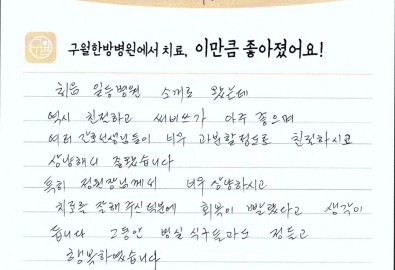 구월한방병원에서 치료, 이만큼 좋아졌어요!
처음 일등병원 소개로 왔는데
역시 친절하고 써비쓰가 아주 좋으며
여러 간호선생님들이 너무 과분할정도로 친절하시고
상냥해서 좋았습니다
특히 정원장님께서 너무 상냥하시고
치료를 잘해주신덕분에 회복이 빨랐다고 생각이
듭니다 그동안 병실 식구들과도 정들고
행복하였습니다